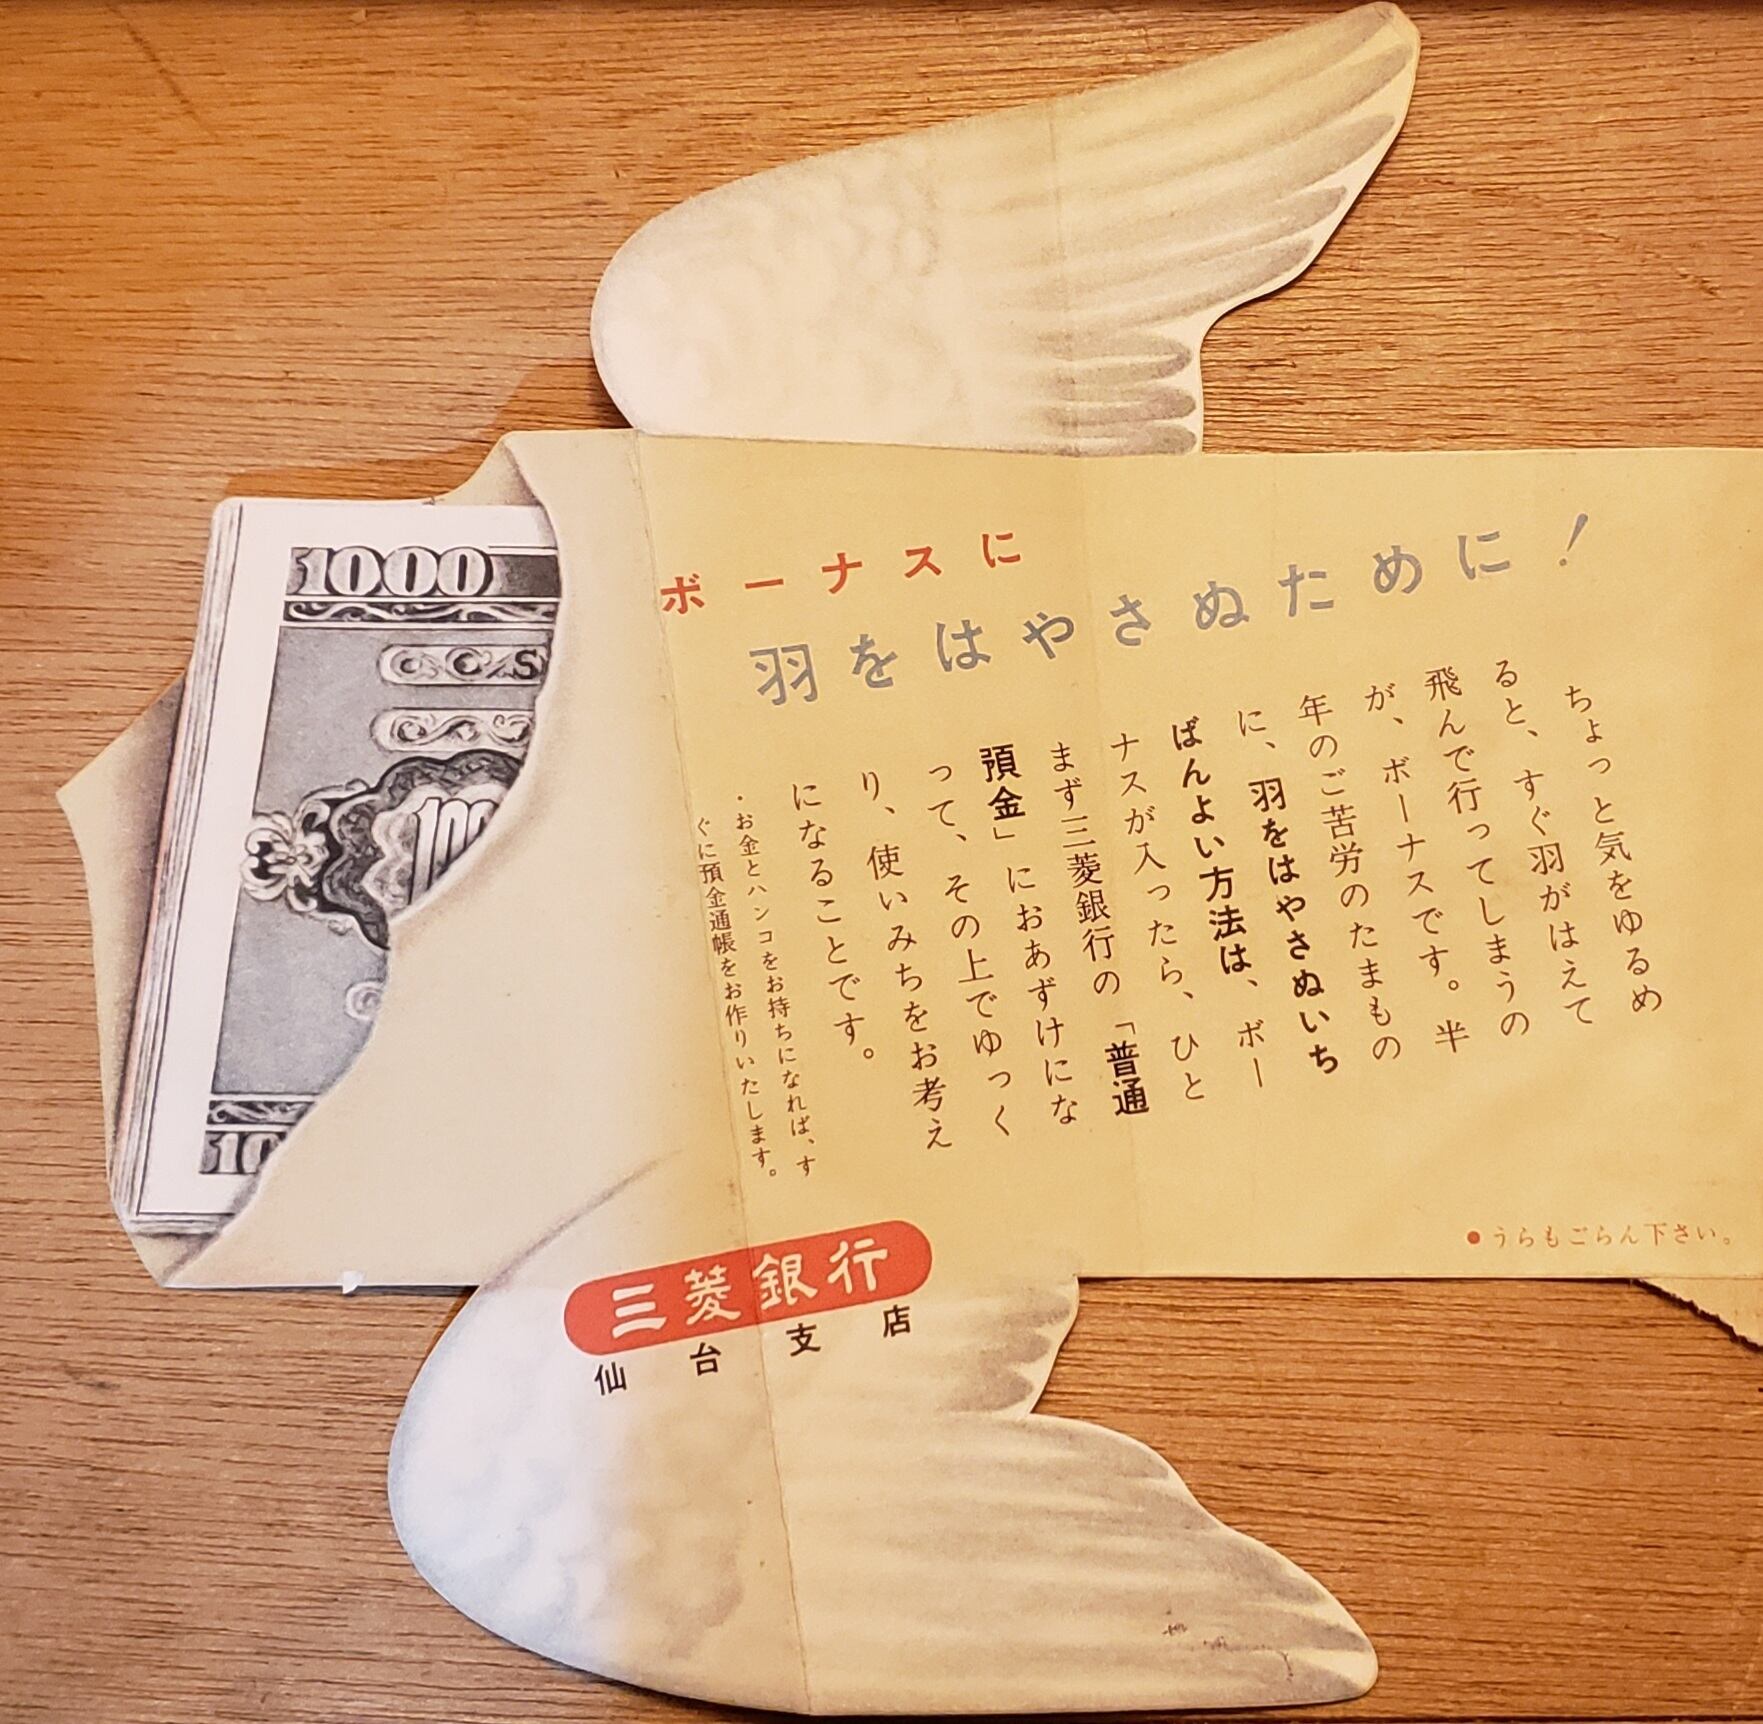 ボーナスに
羽をはやさぬために!
ちょっと気をゆるめ
ると、すぐ羽がはえて
飛んで行ってしまうの
が、ボーナスです。半
年のご苦労のたまもの
に、羽をはやさぬいち
ばんよい方法は、ボー
ナスが入ったら、ひと
まず三菱銀行の「普通
預金」におあずけにな
って、その上でゆっく
り、使いみちをお考え
になることです。
・お金とハンコをお持ちになれば、す
ぐに預金通帳をお作りいたします。
●うらもごらん下さい。
三菱銀行
仙台支店
1000